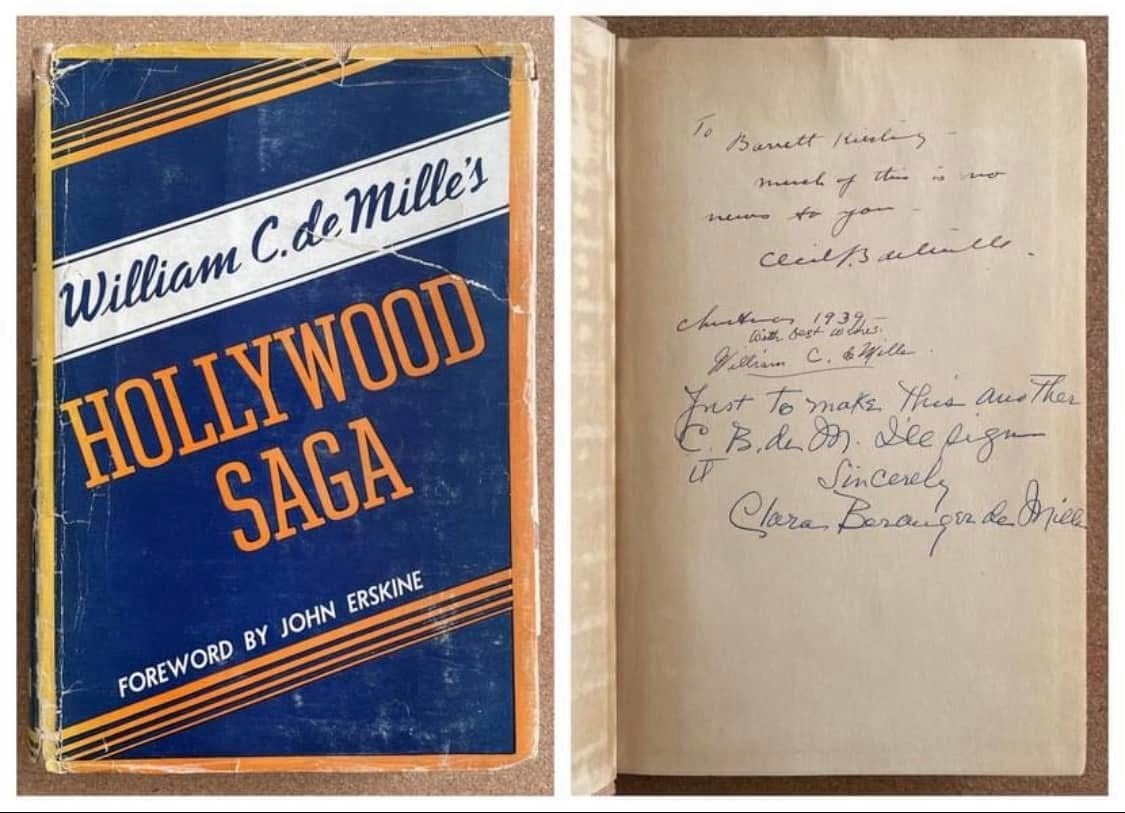 William C. de Mille's
HOLLYWOOD
SAGA
FOREWORD BY JOHN ERSKINE
To
Barrett Kiesling –
much of this is no
news to you –
Cecil B deMille.
Christmas 1939 –
With best wishes.
William C. de Mille.
Just to make this another
C. B. de M. I'll sign
it
Sincerely
Clara Beranger de Mille